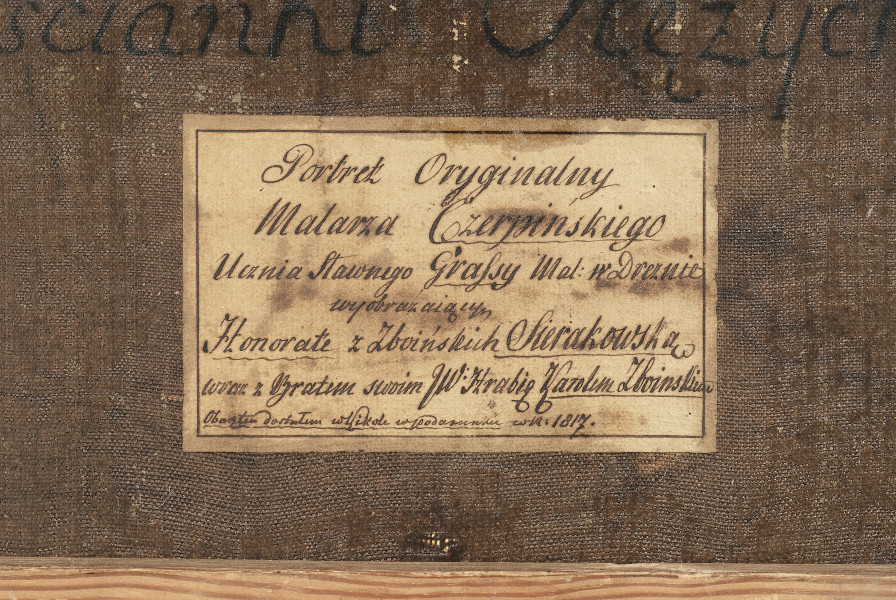 ścianki Olęzyck
Portret Oryginalny
Malarza Czerpińskiego
Ucznia Sławnego Grassy Mal: w Dreznie
wyobrazaiący
Honoratę z Zboińskich Sierakowską
wraz z Bratem swoim JW: Hrabią Karolem Zboinskiem
Obaz ten dostałem w Kikole w podarunku w R. 1817.